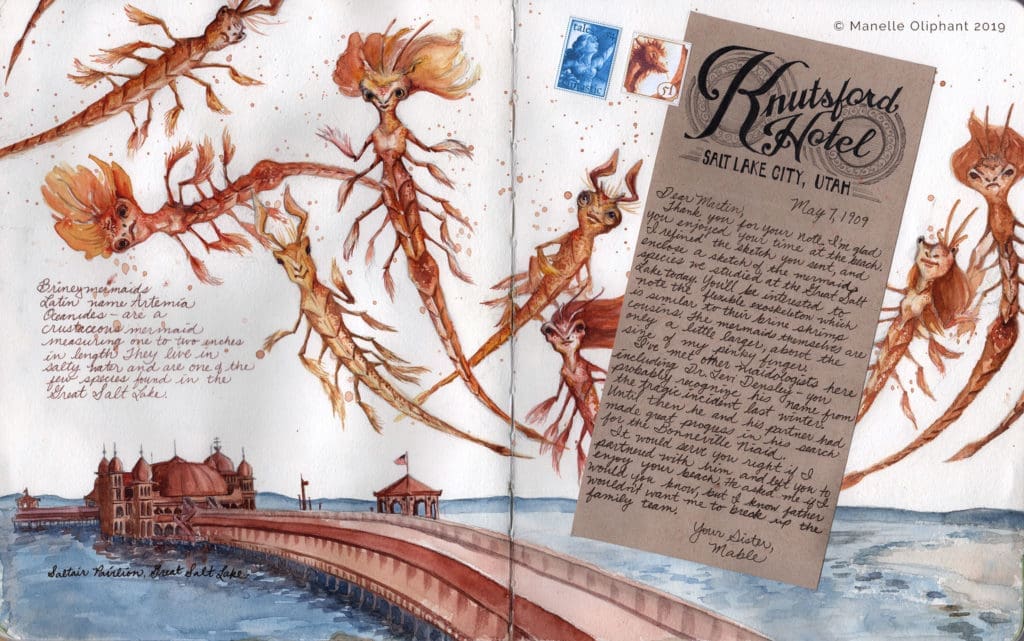 © Manelle Oliphant 2019
tale
Knutsford
Hotel
SALT LAKE CITY, UTAH
May 7, 1909
Dear Martin,
Thank you for your note. I'm glad
you enjoyed your time at the beach.
I refined the sketch you sent, and
enclose a sketch of the mermaid
species we studied at the Great Salt
Lake today. You'll be interested to
note the flexible exoskeleton which
is similar to their brine shrimp
cousins. The mermaids themselves are
only a little larger, about the
size of my pinky finger.
I've met other Niadiologists here
including Dr. Levi Densley-you
probably recognize his name from
the tragic incident last winter.
Until then he and his partner had
made great progress in his search
for the Bonneville Niaid.
It would serve you right if I
partnered with him and left you to
enjoy your beach. He asked me if I
would you know, but I know father
wouldn't want me to break up the
family team.
Your Sister,
Mable
Brineymermaids
Latin name Artemia
Oceanides - are a
crustaceous mermaid
measuring one to two inches
in length. They live in
salty water and are one of the
few species found in the
Great Salt Lake.
Saltair Pavilion, Great Salt Lake